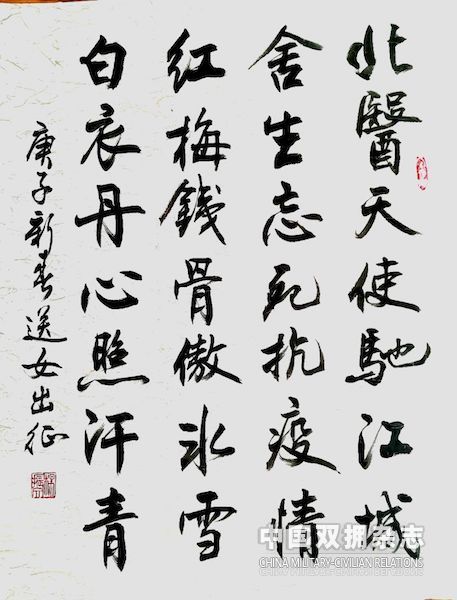 北醫天使馳江城
舍生忘死抗疫情
红梅鐵骨傲冰雪
白衣丹心照汗青
庚子新春送女出征
中国双拥杂志
CHINA MILITARY-CIVILIAN RELATIONS